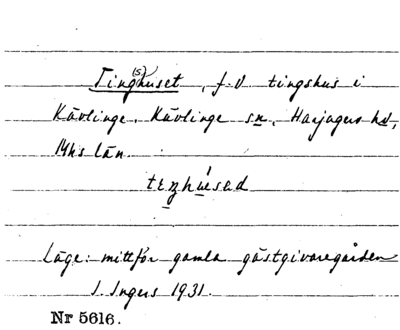 Ting(s)huset, f.d tingshus i
Kävlinge, Kävlinge sn, Harjagers hd,
Mhs län.
Läge: mittför gamla gästgivaregården
I. Ingers 1931.
Nr 5616.